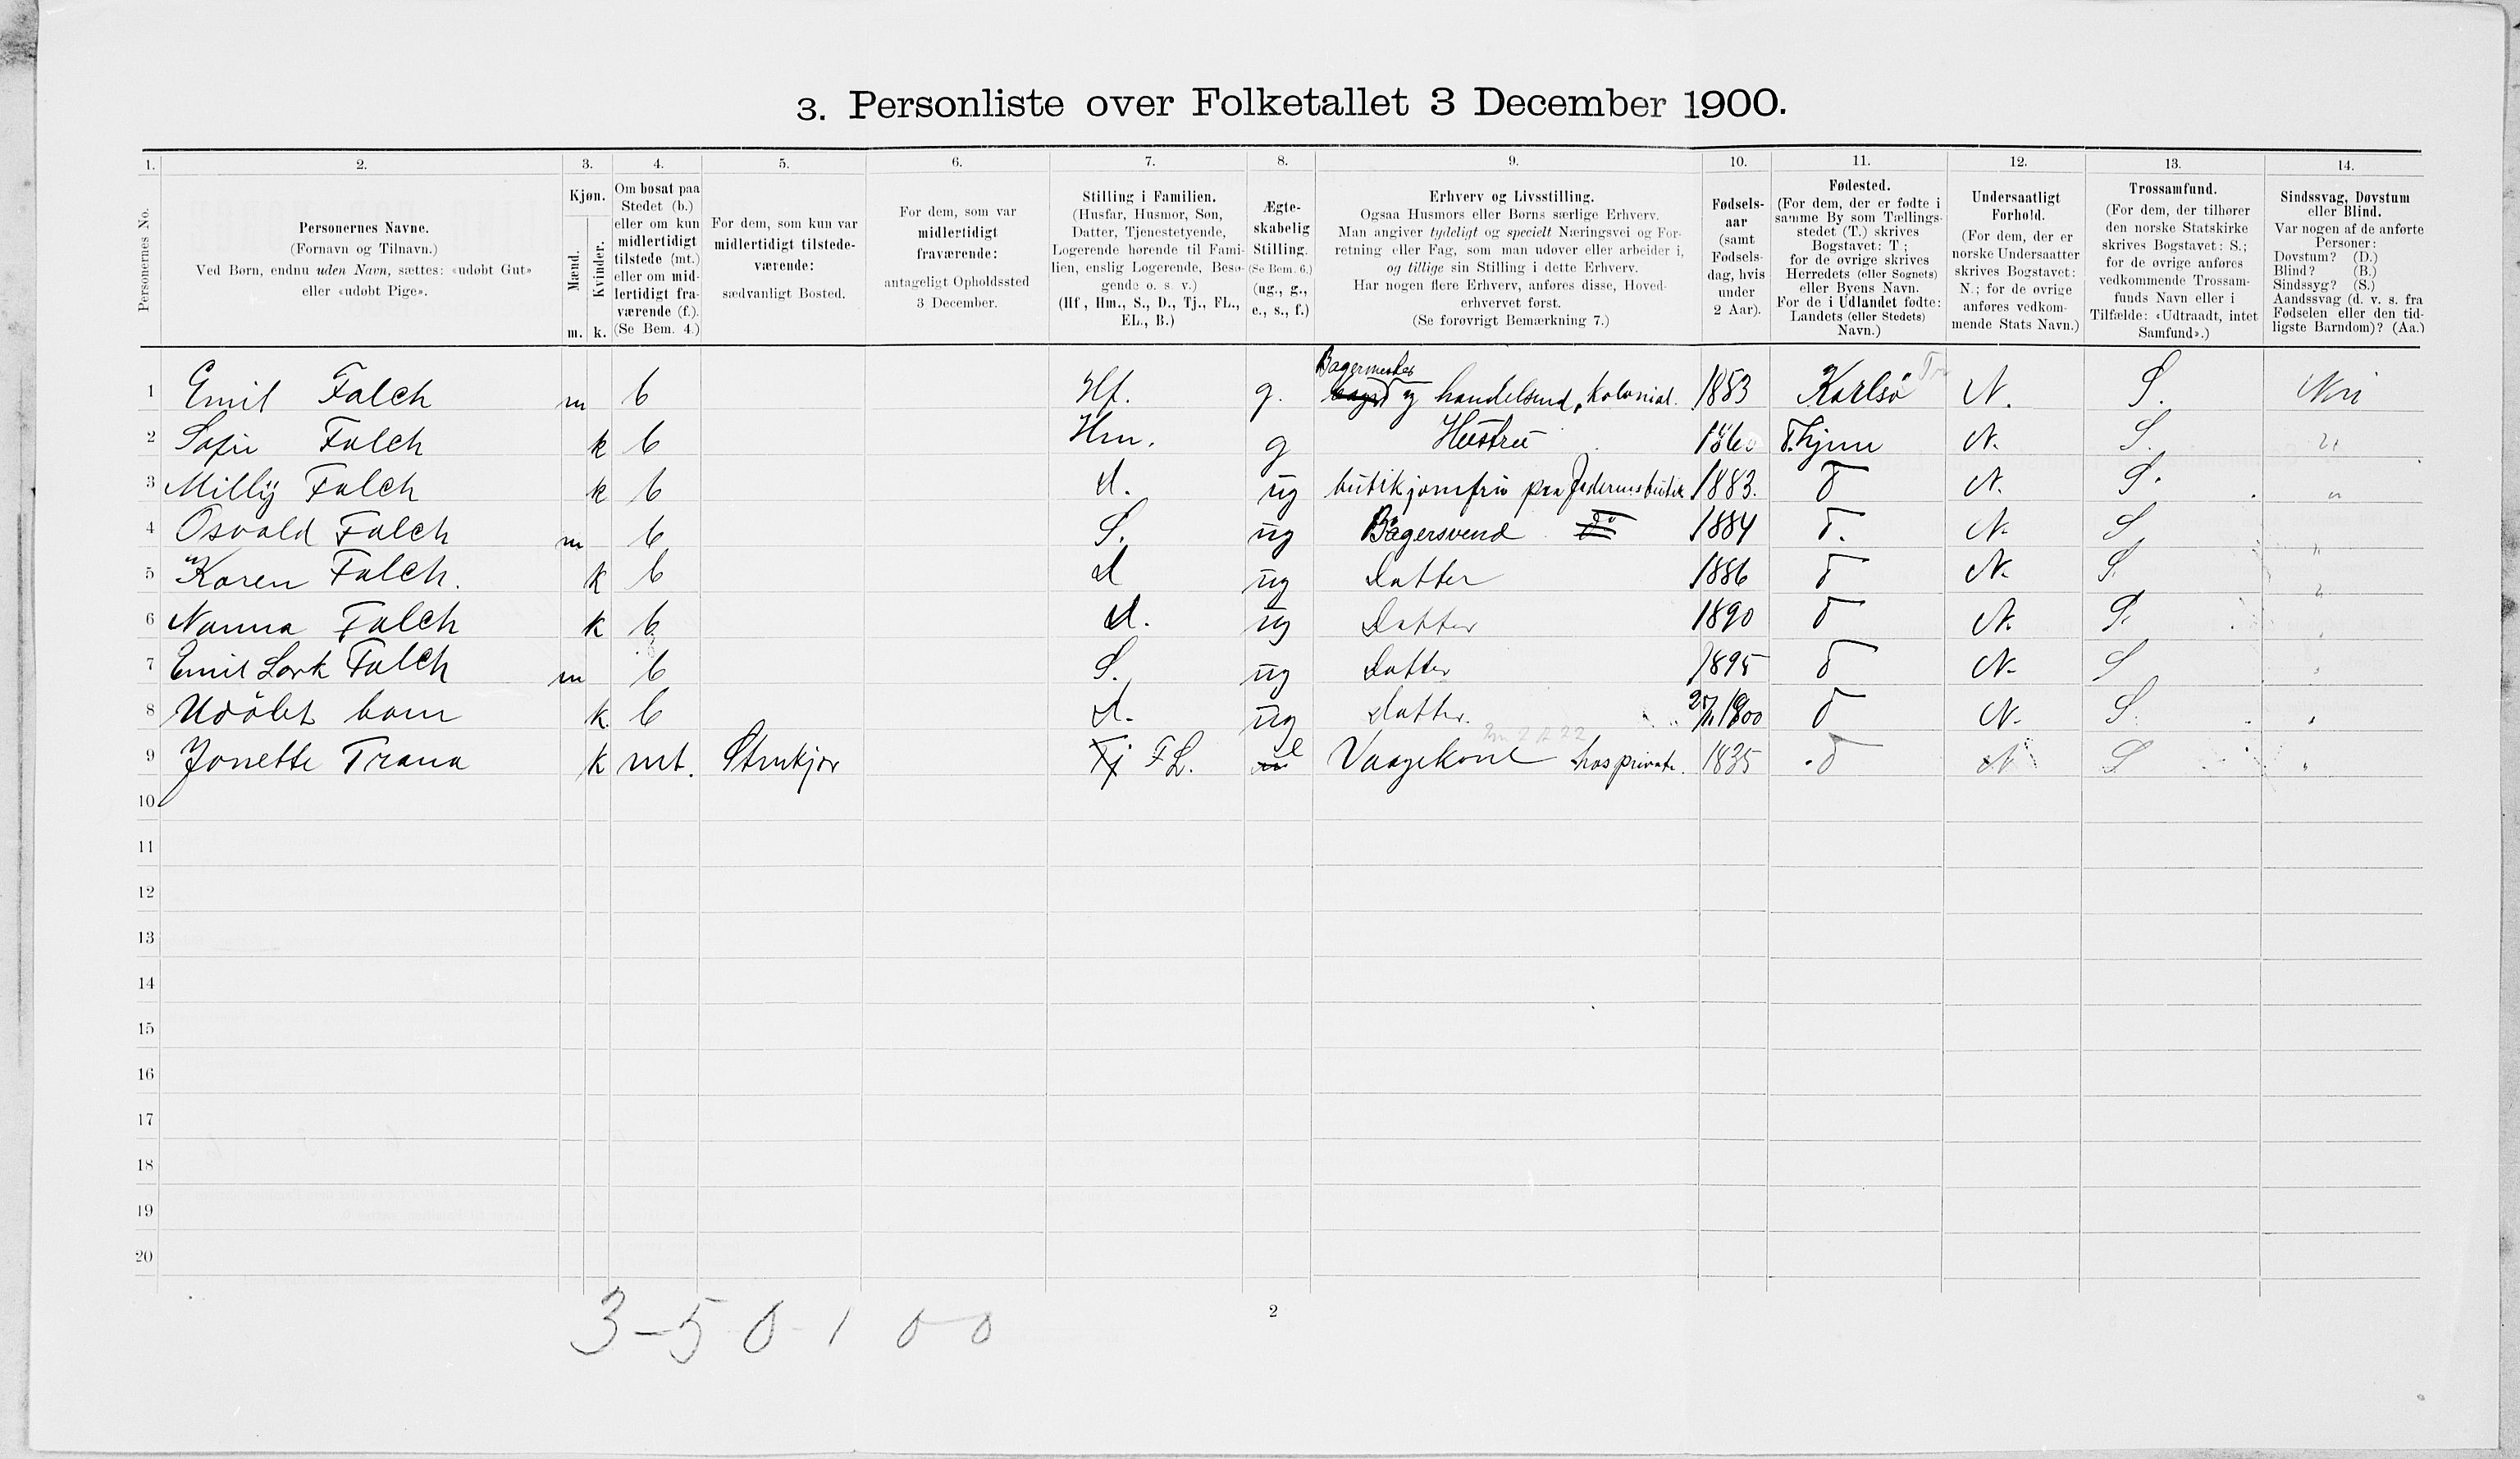 3. Personliste over Folketallet 3 December 1900.
1. 2. 3. 4. 5. 6. 7. 8. 9. 10. 11. 12. 13. 14.
Personernes No.
Personernes Navne.
(Fornavn og Tilnavn.)
Ved Børn, endnu uden Navn, sættes: «udøbt Gut»
eller «udøbt Pige».
Kjøn.
Mænd.
Kvinder.
m. k.
Om bosat paa
Stedet (b.)
eller om kun
midlertidigt
tilstede (mt.)
eller om mid-
lertidigt fra-
værende (f.).
(Se Bem. 4.)
For dem, som kun var
midlertidigt tilstede-
værende:
sædvanligt Bosted.
For dem, som var
midlertidigt
fraværende:
antageligt Opholdssted
3 December.
Stilling i Familien.
(Husfar, Husmor, Søn,
Datter, Tjenestetyende,
Logerende hørende til Fami-
lien, enslig Logerende, Besø-
gende o. s. v.)
(Hf , Hm., S., D., Tj., FL.,
EL., B.)
Ægte-
skabelig
Stilling.
(Se Bem. 6.)
(ug., g.,
e., s., f.)
Erhverv og Livsstilling.
Ogsaa Husmors eller Børns særlige Erhverv.
Man angiver tydeligt og specielt Næringsvei og For-
retning eller Fag, som man udøver eller arbeider i,
og tillige sin Stilling i dette Erhverv.
Har nogen flere Erhverv, anføres disse, Hoved-
erhvervet først.
(Se forøvrigt Bemærkning 7.)
Fødsels-
aar
(samt
Fødsels-
dag, hvis
under
2 Aar).
Fødested.
(For dem, der er fødte i
samme By som Tællings-
stedet (T.) skrives
Bogstavet: T ;
for de øvrige skrives
Herredets (eller Sognets)
eller Byens Navn.
For de i Udlandet fødte:
Landets (eller Stedets)
Navn.)
Undersaatligt
Forhold.
(For dem, der er
norske Undersaatter
skrives Bogstavet:
N.; for de øvrige
anføres vedkom-
mende Stats Navn.)
Trossamfund.
(For dem, der tilhører
den norske Statskirke
skrives Bogstavet: S.;
for de øvrige anføres
vedkommende Trossam-
funds Navn eller i
Tilfælde: «Udtraadt, intet
Samfund».)
Sindssvag, Døvstum
eller Blind.
Var nogen af de anførte
Personer:
Døvstum? (D.)
Blind? (B.)
Sindssyg? (S.)
Aandssvag (d. v. s. fra
Fødselen eller den tid-
ligste Barndom)? (Aa.)
Bagermester
1 Emil Falch m b Hf. g. og handelsmd, Kolonial. 1853 Karlsö N. S. Nei
2 Sofie Falch k b Hm. g Hustru 1860 T.hjem N. S. "
3 Milly Falch k b d. ug butikjomfru paa Faderens butik 1883. T N. S. "
4 Osvald Falch m b S. ug Bagersvend do 1884 T. N. S "
5 Karen Falch. k b d ug Datter 1886 T N. S. "
6 Nanna Falch k b d. ug Datter 1890 T N. S. "
7 Emil Lork Falch m b S. ug Datter 1895 T N. S "
8 Udöbt barn k. b d. ug Datter. 1900 T N. S. "
9 Jonette Trana k mt. Stenkjær Tj FL. e Vaagekone hos private. 1835 T N S "
10
11
12
13
14
15
16
17
18
19
20
3-5 0-1 0-0
2